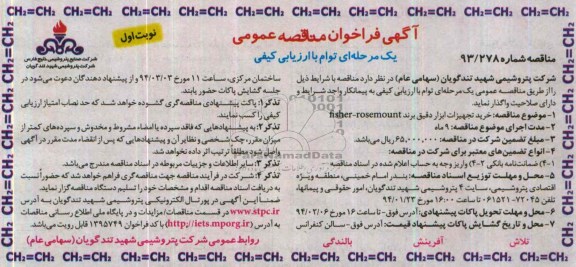 CH₂=CH₂ CH₂=CH₂ CH₂=CH₂ CH₂=CH₂ CH₂=CH₂ CH₂=CH₂ CH₂=CH₂ CH₂=CH₂
نوبت اول
آگهی فراخوان مناقصه عمومی
یک مرحله‌ای توام با ارزیابی کیفی
شرکت صنایع پتروشیمی خلیج فارس
شرکت پتروشیمی شهید تندگویان
مناقصه شماره ۹۳/۲۷۸
شرکت پتروشیمی شهید تندگویان (سهامی عام) در نظر دارد مناقصه با شرایط ذیل
را از طریق مناقصه عمومی یک مرحله‌ای توام با ارزیابی کیفی به پیمانکار واجد شرایط و
دارای صلاحیت واگذار نماید.
۱- موضوع مناقصه: خرید تجهیزات ابزار دقیق برند fisher-rosemount
۲- مدت اجرای موضوع مناقصه: ۹ ماه
۳- مبلغ تضمین شرکت در مناقصه: ۶۵۰،۰۰۰،۰۰۰ ریال می‌باشد.
۴- انواع تضمین های معتبر برای شرکت در مناقصه:
۴-۱) ضمانتنامه بانکی ۴-۲) واریز وجه به حساب اعلام شده در اسناد مناقصه
۵- محل و مهلت توزیع اسناد مناقصه: بندر امام خمینی، منطقه ویژه
اقتصادی پتروشیمی، سایت ۴ پتروشیمی شهید تندگویان، امور حقوقی و پیمانها،
تلفن ۷۲۰۴۵-۰۶۱۵۲۱ تا ساعت ۱۶:۰۰ مورخ ۹۴/۰۱/۲۳
۶- محل و مهلت تحویل پاکات پیشنهادی: آدرس فوق- تا ساعت ۱۶ مورخ ۹۴/۰۳/۰۶
۷- محل و تاریخ گشایش پاکات پیشنهاد قیمت: آدرس فوق- سالن کنفرانس
تلاش آفرینش بالندگی
ساختمان مرکزی، ساعت ۱۱ مورخ ۹۴/۰۳/۰۳ و از پیشنهاد دهندگان دعوت می‌شود در
جلسه گشایش پاکات حضور یابند.
تذکر۱: پاکت پیشنهادی مناقصه گری گشوده خواهد شد که حد نصاب امتیاز ارزیابی
کیفی را کسب نمایند.
تذکر۲: به پیشنهادهایی که فاقد سپرده یا امضاء مشروط و مخدوش و سپرده‌های کمتر از
میزان مقرر، چک شخصی و نظایر آن و پیشنهادهایی که پس از انقضاء مدت مقرر در آگهی
واصل شود مطلقا ترتیب اثر داده نخواهد شد.
تذکر۳: سایر اطلاعات و جزئیات مربوطه در اسناد مناقصه مندرج می‌باشد.
تذکر۴: شرکت در فرآیند مناقصه جهت مناقصه گری فراهم خواهد شد که حضوراً نسبت
به دریافت اسناد مناقصه اقدام و مشخصات خود را تسلیم دستگاه مناقصه گزار نماید.
ضمناً این آگهی در پورتال الکترونیکی پتروشیمی شهید تندگویان به آدرس
www.stpc.ir در قسمت مناقصات/مزایدات و در پایگاه ملی اطلاع رسانی مناقصات
به آدرس (http://iets.mporg.ir) با شماره فراخوان ۱۳۹۵۷۴۹ قابل رویت می‌باشد.
روابط عمومی شرکت پتروشیمی شهید تندگویان (سهامی عام)
CH₂=CH₂ CH₂=CH₂ CH₂=CH₂ CH₂=CH₂ CH₂=CH₂ CH₂=CH₂ CH₂=CH₂ CH₂=CH₂